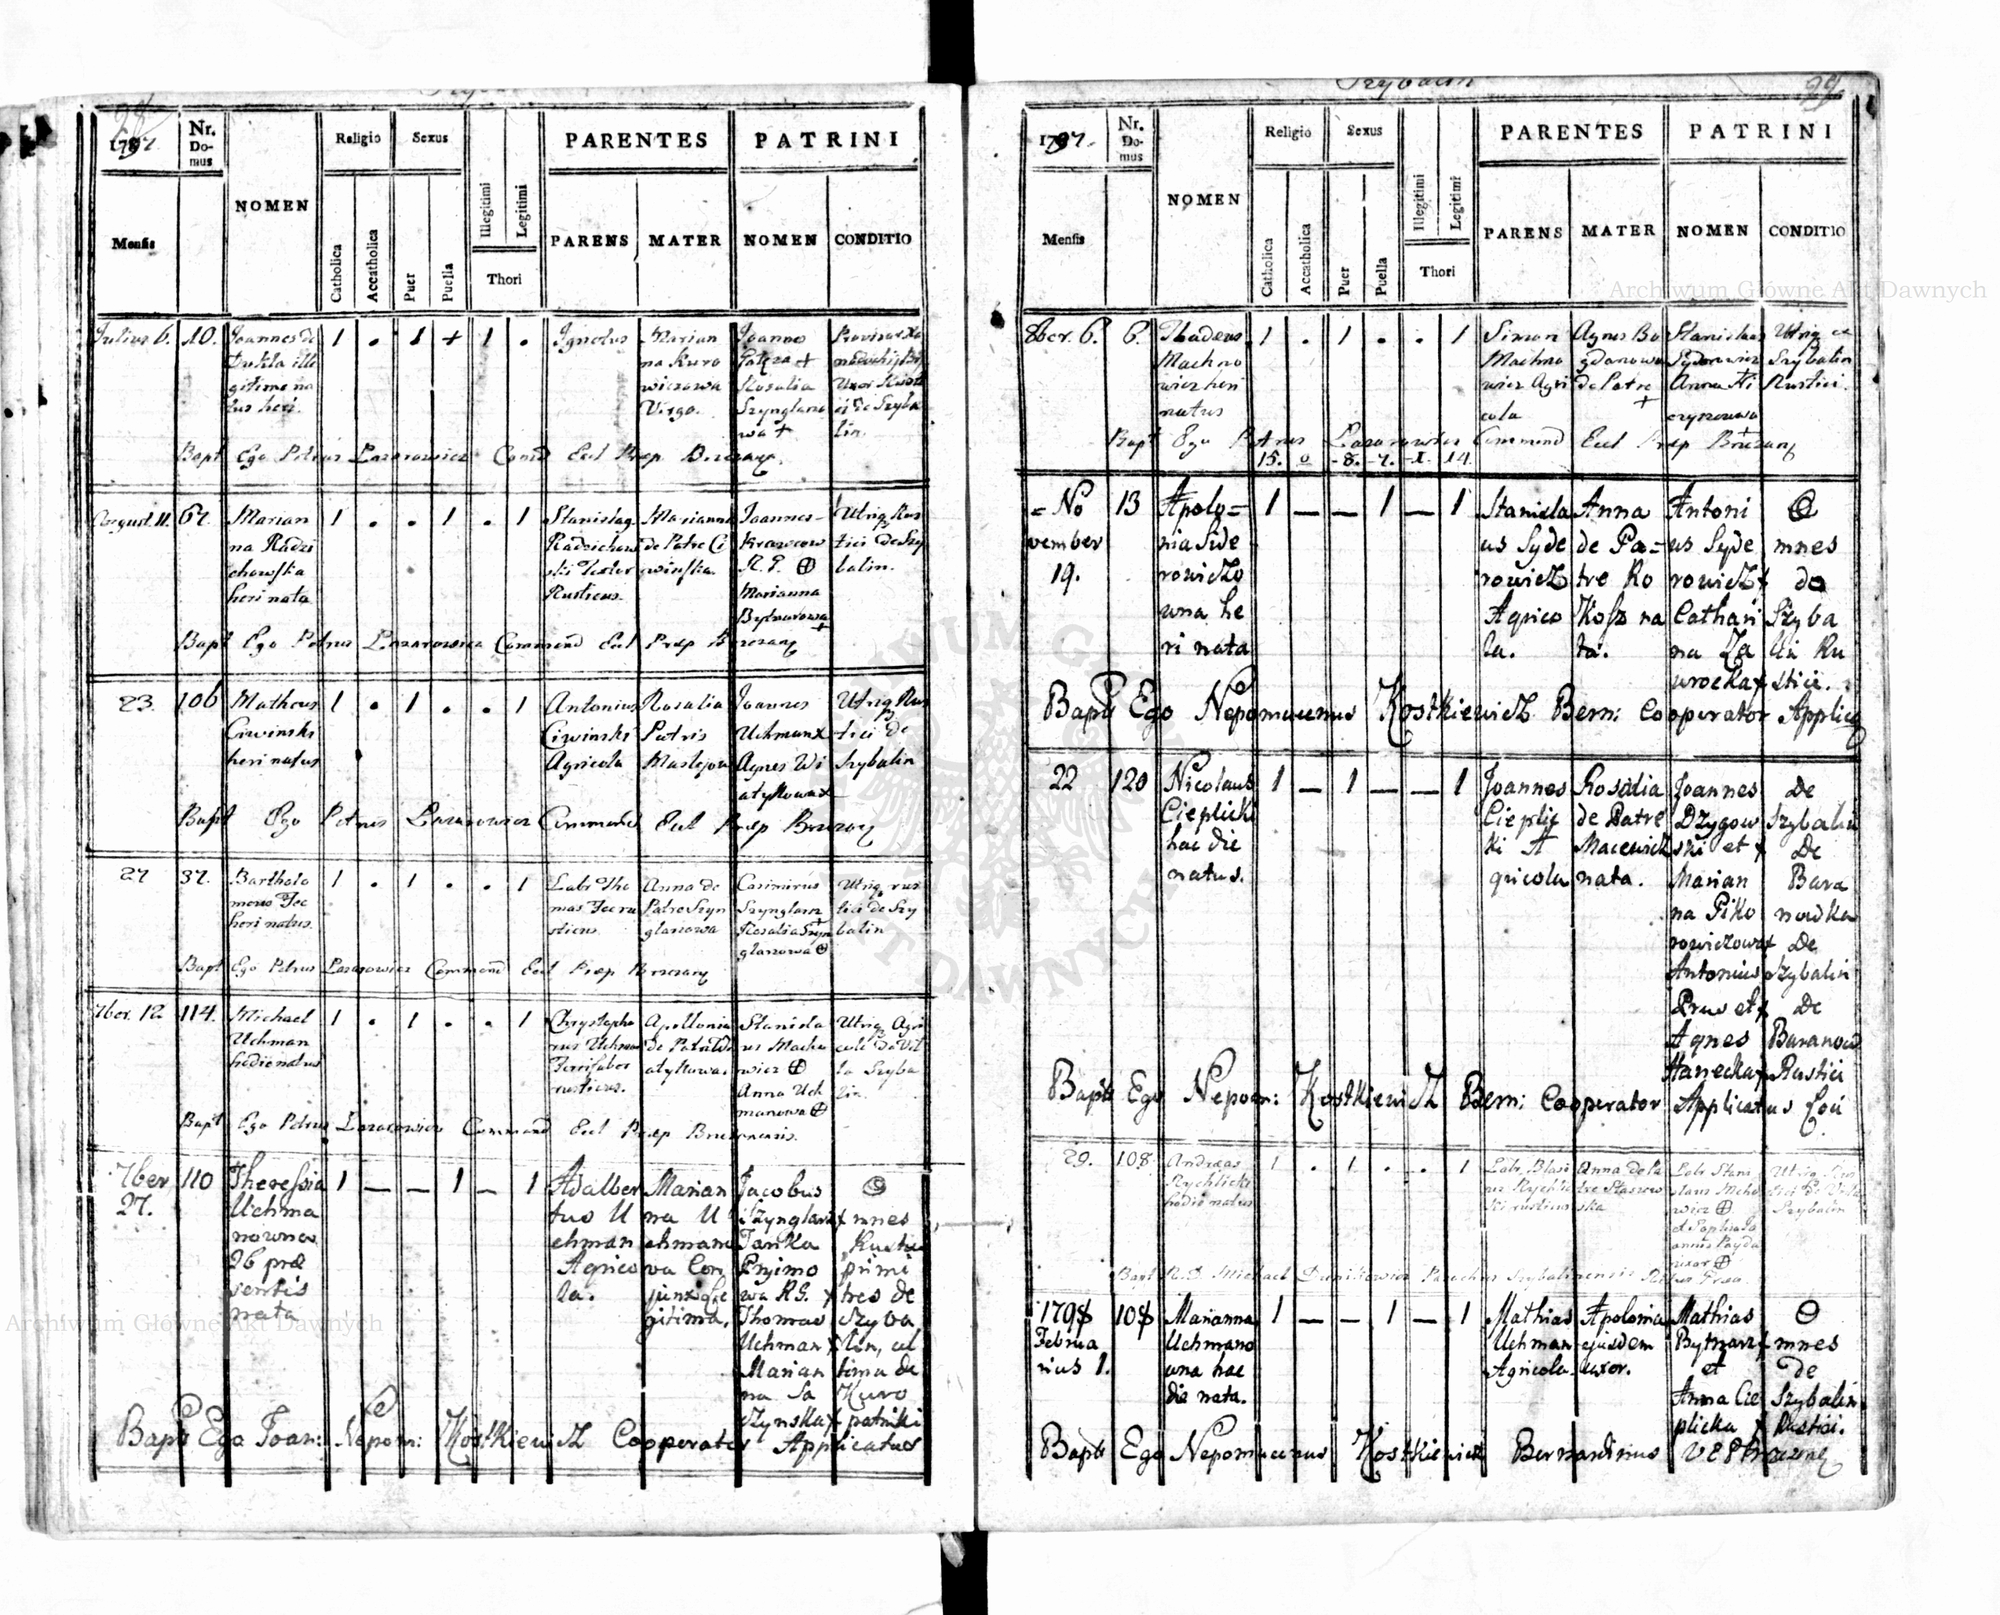 28
1797.
Nr. Domus
NOMEN
Religio
Sexus
PARENTES
PATRINI
Mensis
Catholica
Accatholica
Puer
Puella
Illegitimi
Legitimi
Thori
PARENS
MATER
NOMEN
CONDITIO
Julius 6.
10.
Joannes de
gitime na
tus heri.
1 . 1 + 1 .
Ignotus
Marian
na Kuro
wiczowa
Virgo.
Joannes
Rosalia
Szynglaro
wa +
lin.
Bapt Ego Petrus Lazarowicz Comd Eccl Prep Brzezany.
August. 11.
67.
Marian
na Radzi
chowska
heri nata
1 . . 1 . 1
Stanislaq
Radzichow
ski
Rusticus
Marianna
de Patre Ci
winska.
Joannes
Krawcow
R. G. ⊕
Marianna
Bytnarowa
+
Utriq Rus
tici de Szy
balin.
Bapt Ego Petrus Lazarowicz Commend Eccl Prep Brzezany
23.
106
Matheus
Ciwinski
heri natus
1 . 1 . . 1
Antonius
Ciwinski
Agricola
Rosalia
Patris
Joannes
Uchman x
Agnes Wi
atykowa x
Utriq Rus
tici de
Szybalin
Bapt Ego Petrus Lazarowicz Commend Eccl Prep Brzezany
27
37.
Bartholo
meus
heri natus.
1 . 1 . . 1
Labr Tho
mas
sticus
Anna de
Patre Szyn
glarowa
Casimirus
Szynglarz
+
Rosalia Szyn
glarowa ⊕
Utriq rus
tici de Szy
balin
Bapt Ego Petrus Lazarowicz Commend Eccl Prep Brzezany
7ber. 12
114.
Michael
Uchman
hodie natus
1 . 1 . . 1
Chrystopho
rus Uchman
Ferrifaber
rusticus.
Apollonia
de Patre Wi
atykowa.
Stanisla
us Mach
wicz ⊕
Anna Uch
manowa ⊕
Utriq Agri
colae de Vil
la Szyba
lin.
Bapt Ego Petrus Lazarowicz Commend Eccl Prep Brzezanensis.
7ber
27.
110
Theressia
Uchma
nowna
26 prae
sentis
nata
1 — — 1 — 1
Adalber
tus U
chman
Agrico
la.
Marian
na U
chmano
wa Con
junx Le
gitima.
Jacobus
Szynglarz x
Janka
Pryimo
wa RG. x
Thomas
Uchman x
Marian
na Sa
dzynska x
O
mnes
Rustici
primi
tres de
Szyba
lin, ul
tima de
Kuro
patniki
Bapt Ego Joan: Nepom: Kostkiewicz Cooperator Applicatus
Szybalin
29
1797.
Nr. Domus
NOMEN
Religio
Sexus
PARENTES
PATRINI
Mensis
Catholica
Accatholica
Puer
Puella
Illegitimi
Legitimi
Thori
PARENS
MATER
NOMEN
CONDITIO
8ber. 6.
6.
Thadeus
Machno
wicz heri
natus
1 . 1 . . 1
Simon
Machno
wicz Agri
cola
Agnes Bo
gdanowa
de Patre
+
Stanislaus
Syderowicz
Anna Ni
czyporowa
+
Utriq ex
Szybalin
Rustici.
Bapt Ego Petrus Lazarowicz Commend Eccl Prep Brzezany
15. 0 -8. -7. -1. 14.
= No
vember
19.
13
Apolo=
nia Side
rowiczo
wna he
ri nata
1 — — 1 — 1
Stanisla
us Syde
rowicz
Agrico
la.
Anna
de Pa=
tre Ko
Kosz na
ta.
Antoni
us Syde
rowicz x
Cathari
na Za
wrocka x
O
mnes
de
Szyba
lin Ru
stici.
Bapt Ego Nepomucenus Kostkiewicz Bern: Cooperator Applicq
22
120
Nicolaus
Cieplicki
hac die
natus.
1 — 1 — — 1
Joannes
Cieplic
ki A
gricola
Rosalia
de Patre
Macewich
nata.
Joannes
Dzygow
ski et x
Marian
na Piko
rowiczowa x
Antonius
Prus et x
Agnes
Hanecka x
De
Szybalin
De
Bara
nowka
De
Szybalin
De
Baranow
Rustici
Bapt Ego Nepom: Kostkiewicz Bern: Cooperator Applicatus Loci
29.
108
Andraeas
Rychlicki
hodie natus
1 . 1 . . 1
Labr Blasi
us Rychlic
ki rusticus
Anna de Pa
tre Staszow
ska
Labr Stani
slaus Macho
wicz ⊕
et Sophia Jo
annis Payda
uxor ⊕
Utriq Rus
tici de Villa
Szybalin
Bapt R.D. Michael Dunikowicz Parochus Szybalinensis
1798
Februa
rius 1.
108
Marianna
Uchmano
wna hac
die nata.
1 — — 1 — 1
Mathias
Uchman
Agricola
Apolonia
ejusdem
uxor.
Mathias
Bytnarz x
et
Anna Cie
plicka x
O
mnes
de
Szybalin
Rustici.
Bapt Ego Nepomucenus Kostkiewicz Bernardinus
Archiwum Główne Akt Dawnych
Archiwum Główne Akt Dawnych